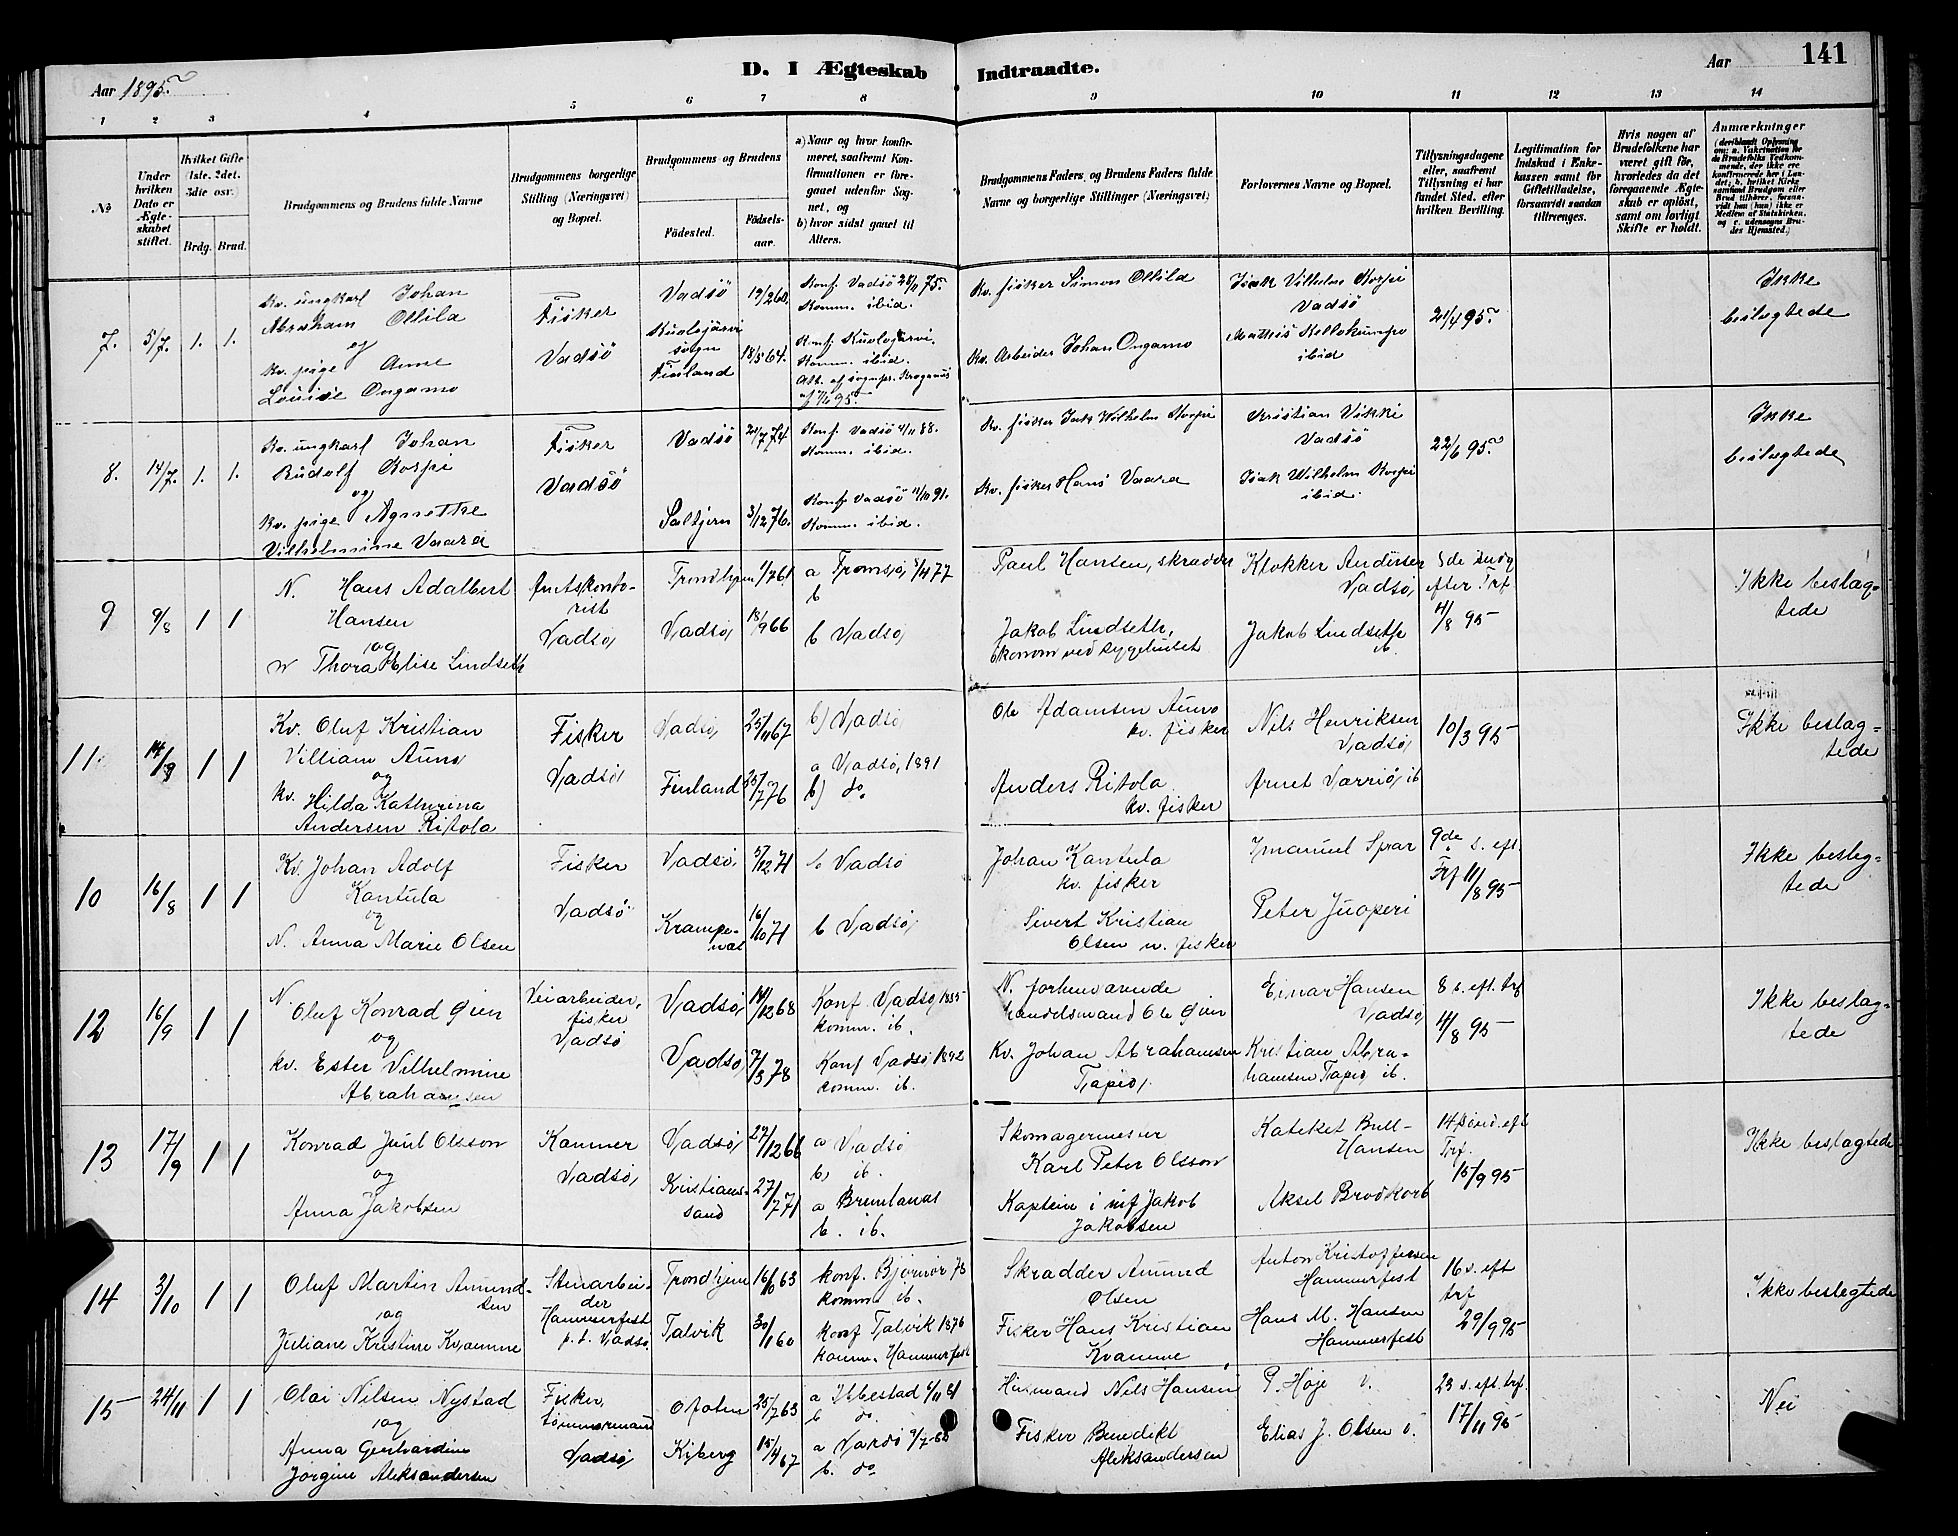 Aar 1895.
D. I Ægteskab Indtraadte.
Aar
141
1 2 3 4 5 6 7 8 9 10 11 12 13 14
No
Under hvilken Dato er Ægteskabet stiftet.
Hvilket Gifte (1ste. 2det. 3die osv.)
Brdg. Brud.
Brudgommens og Brudens fulde Navne
Brudgommens borgerlige Stilling (Næringsvei) og Bopæl.
Brudgommens og Brudens
Födested.
Födselsaar.
a) Naar og hvor konfirmeret, saafremt Konfirmationen er foregaaet udenfor Sognet, og
b) hvor sidst gaaet til Alters.
Brudgommens Faders, og Brudens Faders fulde Navne og borgerlige Stillinger (Næringsvei)
Forlovernes Navne og Bopæl.
Tillysningsdagene eller, saafremt Tillysning ei har fundet Sted, efter hvilken Bevilling.
Legitimation for Indskud i Enkekassen samt for Giftetilladelse, forsaavidt saadan tiltrænges.
Hvis nogen af Brudefolkene har været gift för, hvorledes da det foregaaende Ægteskab er oplöst, samt om lovligt Skifte er holdt.
Anmærkninger
7. 5/7. 1. 1.
Kv. ungkarl Johan
Abraham Ollila
og
Kv. pige Anne
Louise Ongamo
Fisker
Vadsö
Vadsö 19/2 68.
Kuolajärvi sogn Finland 18/5 64.
Konf. Vadsö 75.
Komm. ibid.
Konf. Kuolajärvi.
Komm. ibid.
Kv. fisker Simon Ollila
Kv. Arbeider Johan Ongamo
Isak Vilhelm Korpi
Vadsö
ibid
21/4 95.
Ikke
beslægtede
8. 14/7. 1. 1.
Kv. ungkarl Johan
Rudolf Korpi
og
Kv. pige Agnethe
Vilhelmine Vaara
Fisker
Vadsö
Vadsö 21/7 74.
Saltjern 3/12 76.
Konf. Vadsö 88.
Komm. ibid.
Konf. Vadsö 11/10 91.
Komm. ibid.
Kv. fisker Isak Wilhelm Korpi
Kv. fisker Hans Vaara
Kristian Vikki
Vadsö
Isak Wilhelm Korpi
ibid.
22/6 95.
Ikke
beslægtede
9 9/8 1 1
N. Hans Adalbert
Hansen
og
N Thora Elise Lindseth
Amtskontorist
Vadsø,
Trondhjem 1/7 61
Vadsø, 18/9 66
a Tromsø, 8/4 77
b
b Vadsø,
Paul Hansen, skrædder
Jakob Lindseth,
økonom ved sygehuset
Klokker Andersen
Vadsø,
Jakob Lindseth
ib.
5de søndg
efter Trf
4/8 95
Ikke beslæg-
tede
11. 14/8 1 1
Kv. Oluf Kristian
Villiam Auno
og
kv. Hilda Katharina
Andersen Ritola
Fisker
Vadsø
Vadsø, 25/11 67
Finland 25/7 76
b) Vadsø
a Vadsø, 1891
b) do.
Ole Adamsen Auno
kv. fisker
Anders Ritola
kv. fisker
Nils Henriksen
Vadsø,
Arnet Varrio, ib
10/3 95
Ikke beslæg-
tede
10 16/8 1 1
Kv. Johan Adolf
Kantula
og
N. Anna Marie Olsen
Fisker
Vadsø
Vadsø, 5/12 71
Krampenæs 16/10 71
b Vadsø
b Vadsø,
Johan Kantula
kv. fisker
Sivert Kristian
Olsen n. fisker
Imanuel Sprar
Peter Juoperi
9de s. eft.
Trf 11/8 95
Ikke beslæg-
tede
12 16/9 1 1
N.
Oluf Konrad Gien
og
kv. Ester Vilhelmine
Abrahamsen
Veiarbeider,
fisker
Vadsø
Vadsø, 14/12 68
Vadsø, 7/3 78
Konf. Vadsø, 1885
komm. ib.
Konf Vadsø, 1892
komm. ib.
N. forhenværende
handelsmand Ole Gien
Kv. Johan Abrahamsen
Tapio,
Einar Hansen
Vadsø,
Kristian Abra-
hamsen Tapio, ib.
8 s. eft. trf
4/8 95
Ikke beslæg-
tede
13 17/9 1 1
Konrad Juul Olsson
og
Anna Jakobsen
Kæmner
Vadsø,
Vadsø, 27/12 66
Kristianssand 27/7 71
a Vadsø
b, ib.
a Brunlanæs
b. ib.
Skomagermester
Karl Peter Olsson
Kaptein i inf Jakob
Jakobsen
Kateket Bull-
Hansen
Aksel Brodkorb
14 sönd. eft
Trf.
15/9 95
Ikke beslægtede
14 3/10 1 1
Oluf Martin Amund-
sen
og
Juliane Kristine Kvamme
Stenarbei-
der
Hammerfest
p. t. Vadsø.
Trondhjem 16/10 63
Talvik 30/1 60
konf. Bjørnör 78
komm. ib.
konf Talvik 1876
komm. Hammerfest
Skrædder Amund
Olsen
Fisker Hans Kristian
Kvamme
Anton Kristoffersen
Hammerfest
Hans M. Hansen
Hammerfest
16 s. eft
trf
29/9 95
Ikke beslægtede
15 24/11 1 1
Olai Nilsen Nystad
og
Anna Gerhardine
Jørgine Aleksandersen
Fisker,
tømmermand
Vadsø,
Ofoten 25/7 63
Kiberg 15/4 67
a Ibbestad 81
b do.
a Vardø
b. do
Husmand Nils Hansen
Fisker Benedikt
Aleksandersen
P. Høje v.
Elias J. Olsen v.
23 s. eft. trf.
17/11 95
Nei